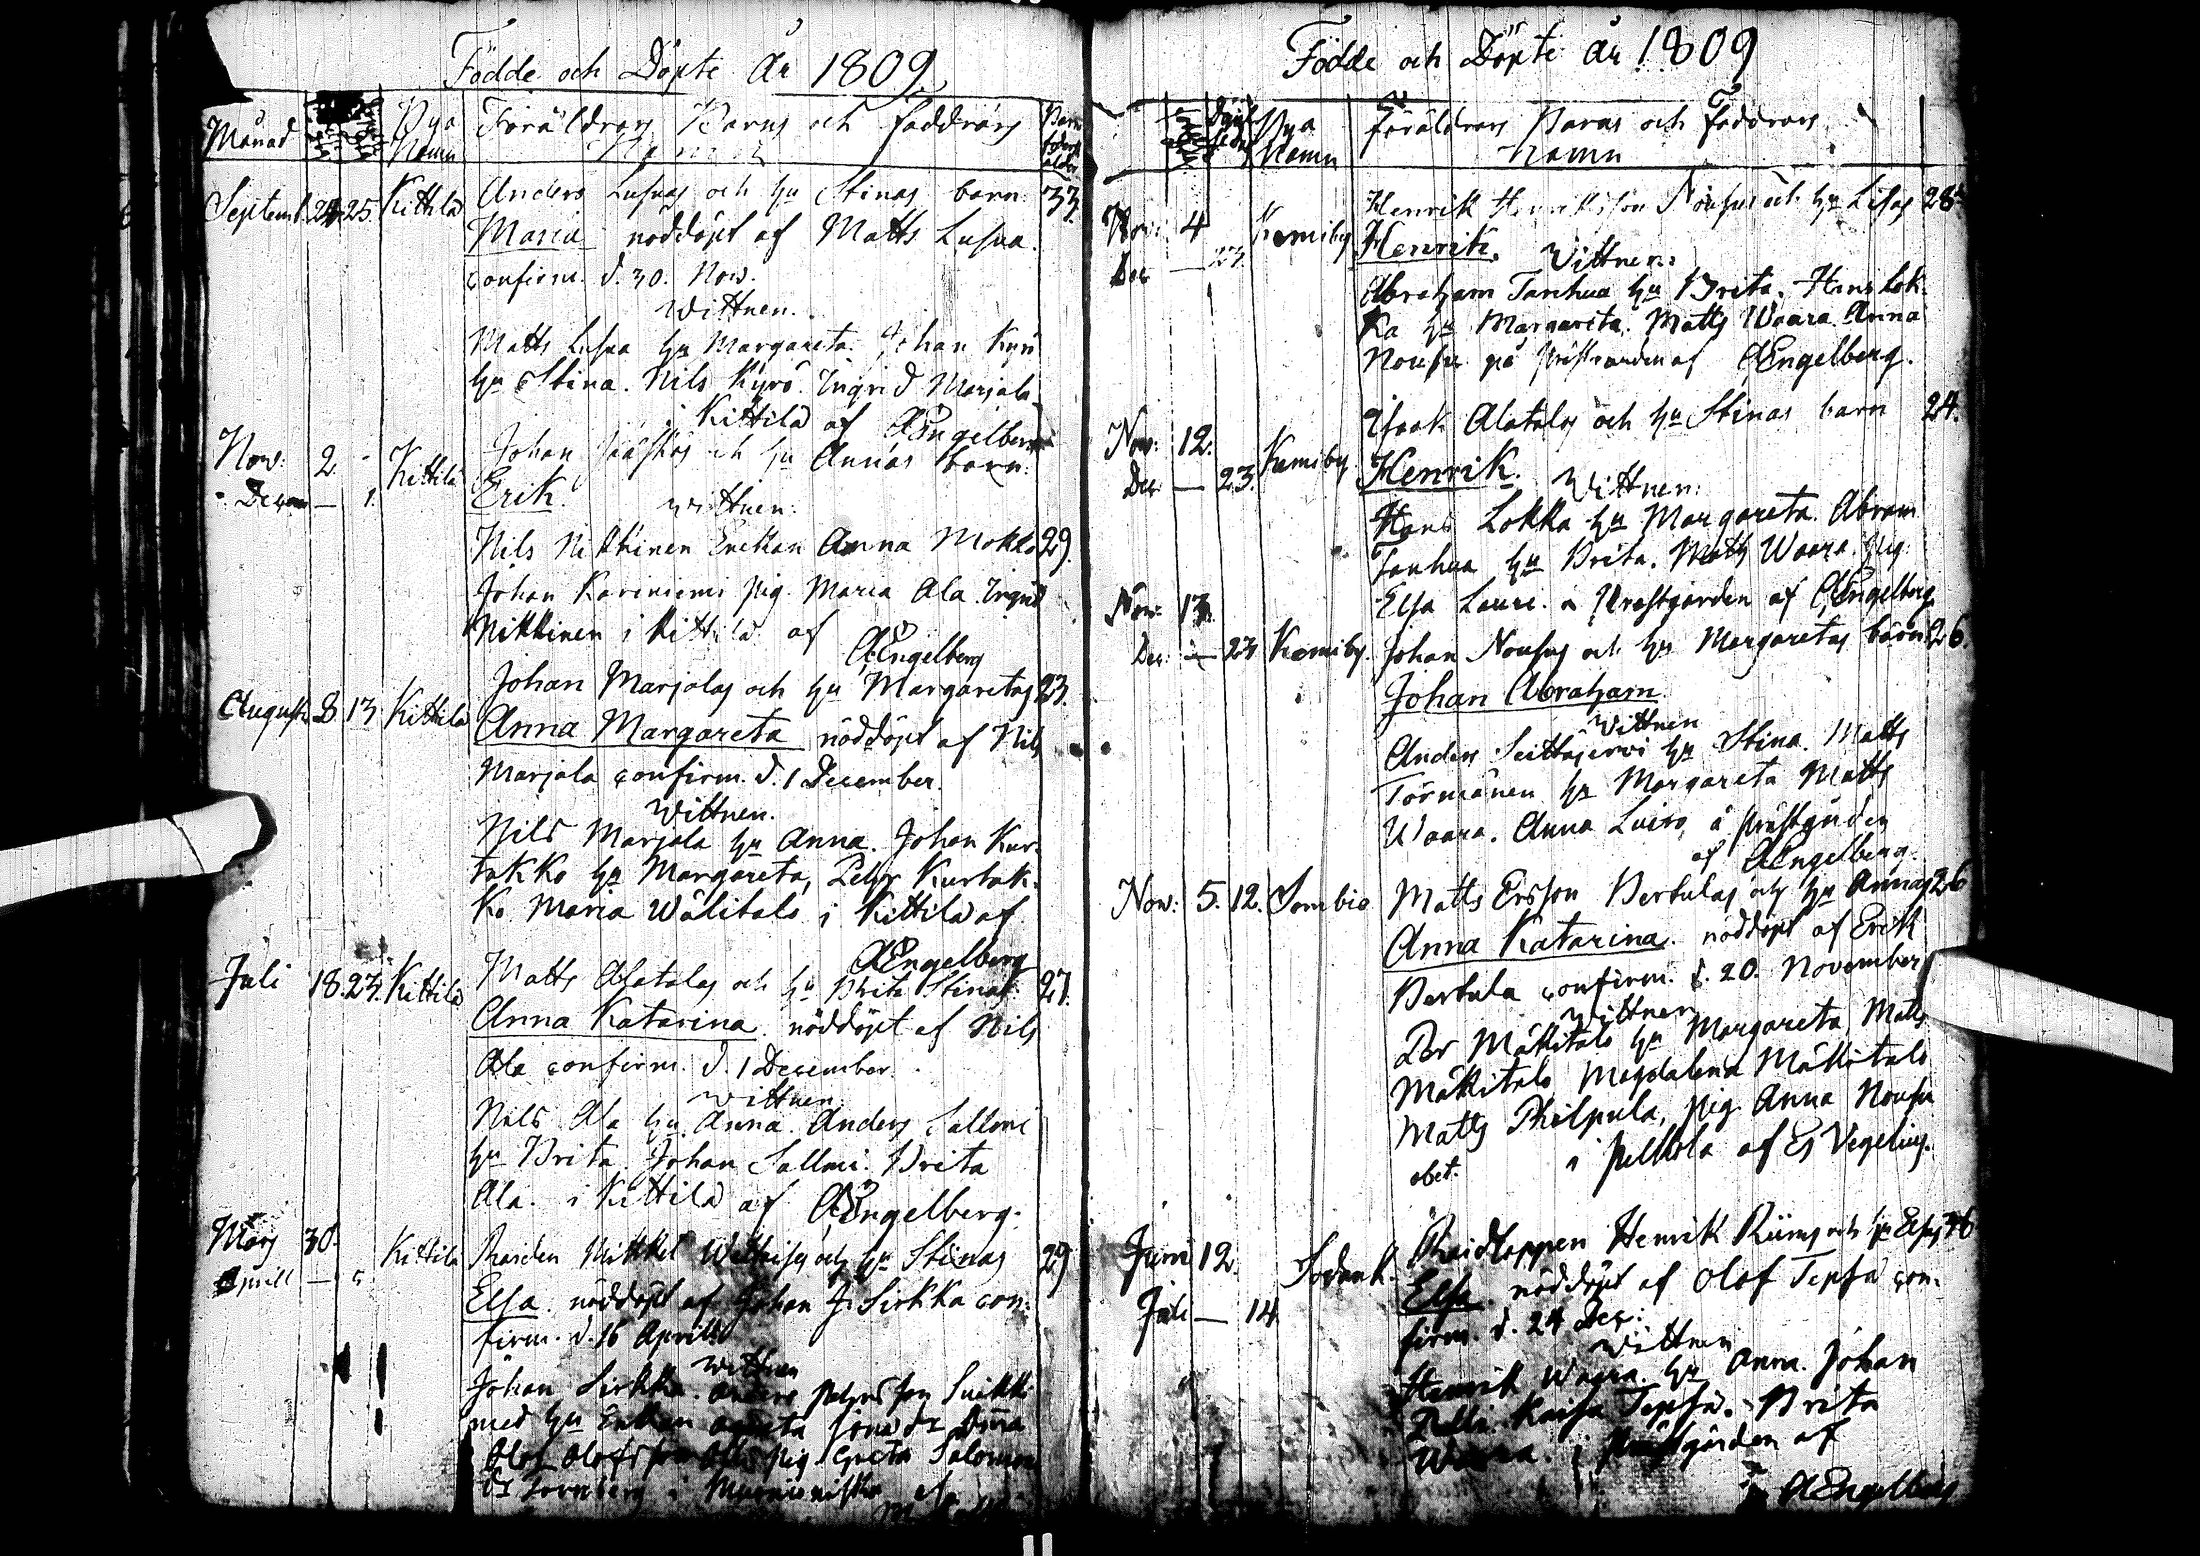 Födde och Döpte År 1809
Månad
Bya Namn
Föräldrars Barns och Faddrars
Namn
Septemb. 24 25. Kittilä Anders Lusuas och hu Stinas barn 33.
Maria nöddöpt af Matts Lusua
confirm. d. 30. Nov.
Wittnen.
Matts Lusua hu Margareta. Johan
hu Stina. Nils Kyrö. Ingrid Marjala
i Kittilä af AEngelberg
Nov: 2 - Kittilä Johan och hu Annas barn.
Decem — 1. Erik.
wittnen:
Nils Nikkinen Enckan Anna Mokko 29.
Johan Kariniemi pig. Maria Ala. Ingrid
Nikkinen i Kittilä af
AEngelberg
Augusti 8 13 Kittilä Johan Marjalas och hu Margaretas 23.
Anna Margareta nöddöpt af Nils
Marjala confirm. d. 1 December.
Wittnen.
Nils Marjala hu Anna. Johan Kur-
takko hu Margareta, Petter Kurtak-
ko Maria Wälitalo i Kittilä af
AEngelberg
Juli 18. 23. Kittilä Matts Alatalos och hu Brita Stinas 27.
Anna Katarina nöddöpt af Nils
Ala confirm. d. 1 December.
wittnen
Nils Ala hu Anna. Anders Salloni
hu Brita. Johan Sallmi. Brita
Ala. i Kittilä af AEngelberg.
Mars 30. Kittilä Mikkel och hu Stinas 29
Aprill — 5
Elsa. nöddöpt af Johan J. Sirkka con-
firm. d. 16 Aprill
Wittnen
Johan Sirkka. Anders
med hu Enckan Jons dr
Olof Olofsson pig Greta Salomons
dr i af
Födde och Döpte År 1809
Bya Namn
Föräldrars Barns och Faddrars
Namn
Nov: 4 Kemiby Henrik Henriksson Nousus och hu Lisas 28
Dec — 23. Henrik. Wittnen:
Abraham Tanhua hu Brita. Hans Lok-
ka hu Margareta. Matts Waara Anna
Nousu på af AEngelberg.
Nov: 12. Kemiby Isaak Alatalos och hu Stinas barn 24.
Dec — 23. Henrik. Wittnen:
Hans Lokka hu Margareta. Abram
Tanhua hu Brita. Matts Waara. pig.
Elsa Lauri. a Prestgården af AEngelberg
Nov: 13.
Dec: — 23 Kemiby. Johan Nousus och hu Margaretas barn 26.
Johan Abraham.
Wittnen
Anders Seittajerwi hu Stina. Matts
Törmänen hu Margareta Matts
Waara. Anna Luiro, å
af AEngelberg.
Nov: 5. 12. Sombio Matts Ersson Pertulas och hu Annas 26
Anna Katarina. nöddöpt af Erik
Pertula confirm. d. 20. November
Wittnen
Per Mäkitalo hu Margareta, Matts
Mäkitalo Magdalena Mäkitalo
Matts Philpula, pig Anna Nousu
obit. i Pelkola af Vegelius.
Juni 12. Sodank. Henrik Riimis och hu Elsas 36
Juli — 14 Elsa. nöddöpt af Olof Tepsa con-
firm. d. 24 Dec:
Wittnen
Henrik Waara. hu Anna. Johan
Pelli. Kaisa Tepsa. Brita
Waara. i Prestgården af
AEngelberg